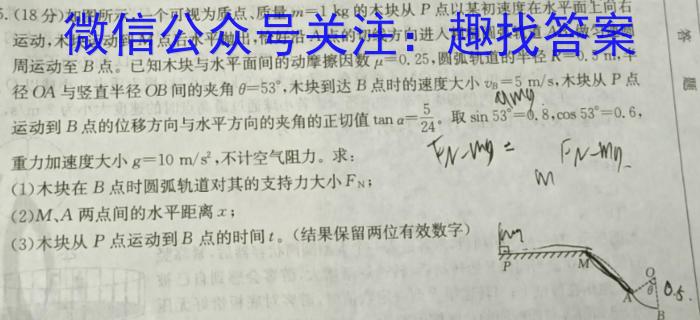 5.(18分)如图所示,一个可视为质点、质量m=1 kg的木块从P点以某初速度在水平面上向右
微信公众号关注：趣找答案
运动,木
周运动至B点。已知木块与水平面间的动摩擦因数μ=0.25,圆弧轨道的半径R=0.5 m,半
径OA与竖直半径OB间的夹角θ=53°,木块到达B点时的速度大小vB=5 m/s,木块从P点
运动到B点的位移方向与水平方向的夹角的正切值tan α=5/24。取sin 53°=0.8,cos 53°=0.6,
重力加速度大小g=10 m/s²,不计空气阻力。求:
(1)木块在B点时圆弧轨道对其的支持力大小FN;
(2)M、A两点间的水平距离x;
(3)木块从P点运动到B点的时间t。(结果保留两位有效数字)
FN-mg=
FN-mg
m
P
M
A
O
θ
0.5
B
答
题